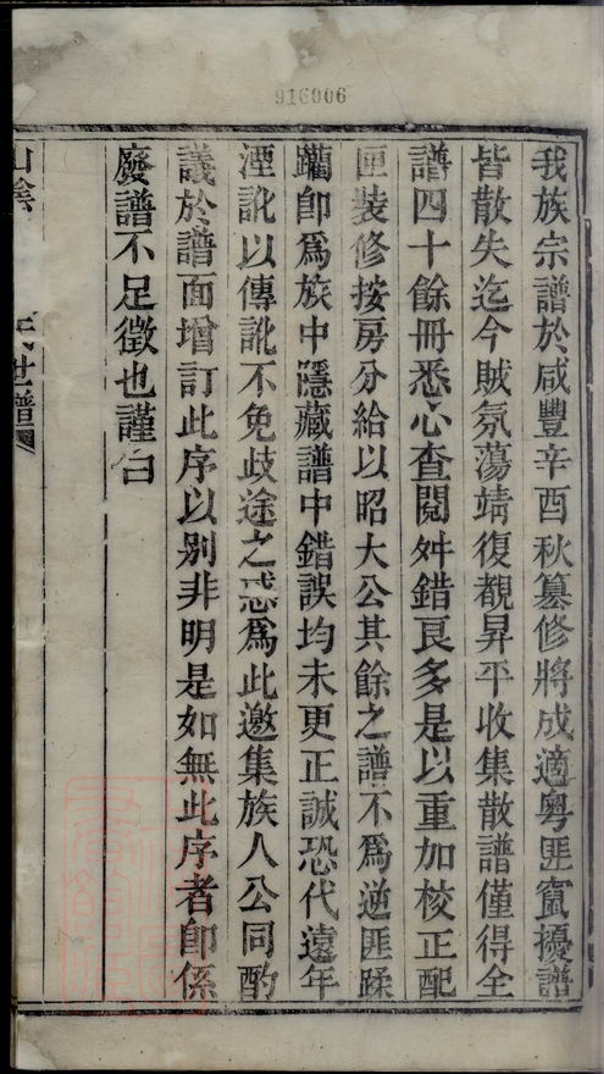 916006
我族宗譜於咸豐辛酉秋纂修將成適粵匪竄擾譜
皆散失迄今賊氛蕩靖復覩昇平收集散譜僅得全
譜四十餘冊悉心查閱舛錯良多是以重加校正配
匣裝修按房分給以昭大公其餘之譜不爲逆匪蹂
躪卽爲族中隱藏譜中錯誤均未更正誠恐代遠年
湮訛以傳訛不免歧途之惑爲此邀集族人公同酌
議於譜面增訂此序以别非明是如無此序者卽係
廢譜不足徵也謹白
山陰
氏世譜